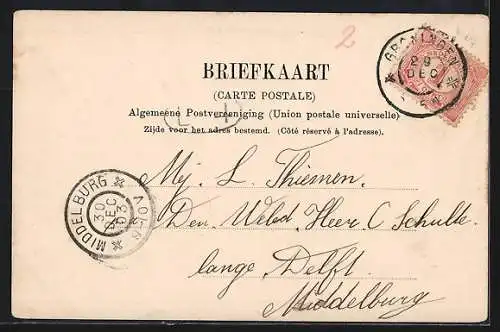 2
GRONINGEN
29
DEC
BRIEFKAART
(CARTE POSTALE)
Algemeene Postvereeniging (Union postale universelle)
Zijde voor het adres bestemd. (Côté réservé à l'adresse).
MIDDELBURG
30
DEC
03
VOORN
Mej. L. Thiemen.
Den. Weled. Heer. C Schulte.
lange Delft.
Middelburg